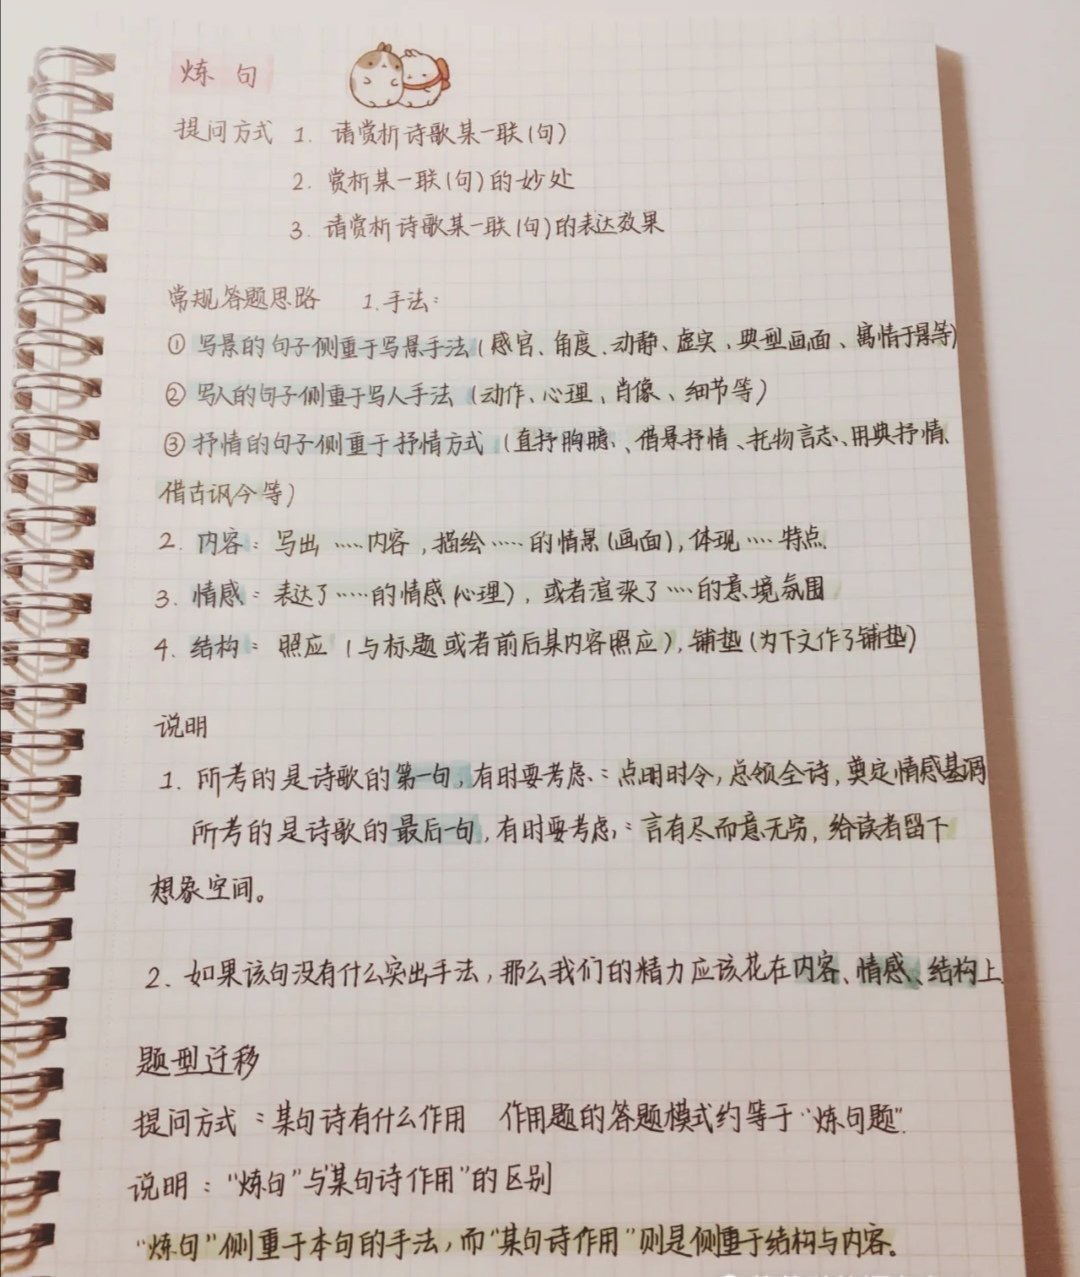 炼句
提问方式 1. 请赏析诗歌某一联(句)
2. 赏析某一联(句)的妙处
3. 请赏析诗歌某一联(句)的表达效果
常规答题思路 1.手法:
① 写景的句子侧重于写景手法(感官、角度、动静、虚实、典型画面、寓情于景等)
② 写人的句子侧重于写人手法(动作、心理、肖像、细节等)
③ 抒情的句子侧重于抒情方式(直抒胸臆、借景抒情、托物言志、用典抒情、
借古讽今等)
2. 内容: 写出……内容,描绘……的情景(画面),体现……特点.
3. 情感: 表达了……的情感(心理),或者渲染了……的意境氛围
4. 结构: 照应(与标题或者前后某内容照应),铺垫(为下文作了铺垫)
说明
1. 所考的是诗歌的第一句,有时要考虑:点明时令,总领全诗,奠定情感基调
所考的是诗歌的最后一句,有时要考虑:言有尽而意无穷,给读者留下
想象空间。
2. 如果该句没有什么突出手法,那么我们的精力应该花在内容、情感、结构上
题型迁移
提问方式:某句诗有什么作用 作用题的答题模式约等于“炼句题”.
说明:“炼句”与“某句诗作用”的区别
“炼句”侧重于本句的手法,而“某句诗作用”则是侧重于结构与内容。